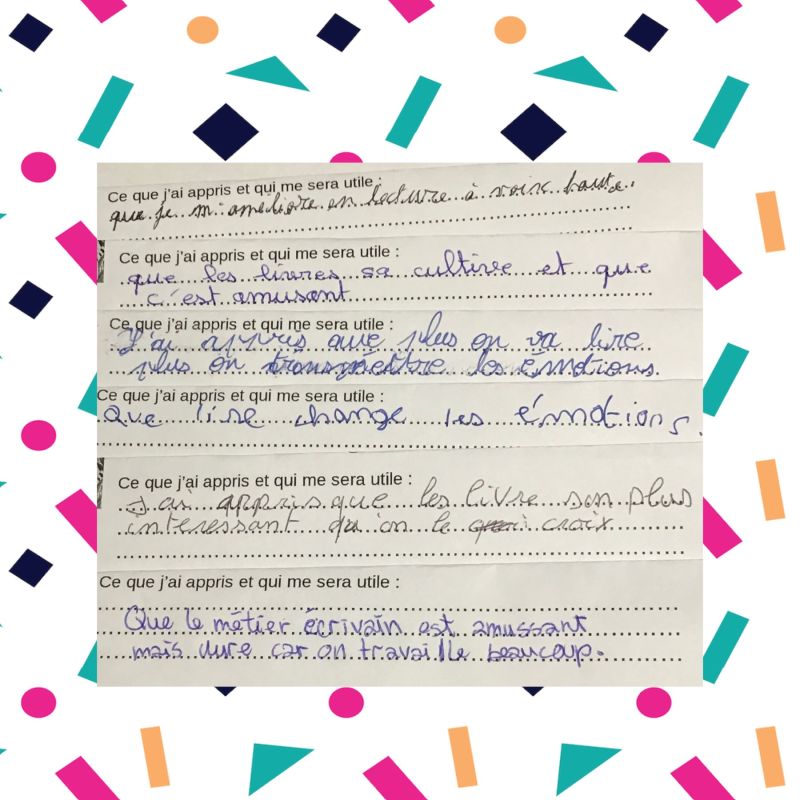 Ce que j'ai appris et qui me sera utile :
que je m'ameliore en lecture à voix haute.
Ce que j'ai appris et qui me sera utile :
que les livres sa cultive et que
c'est amusant
Ce que j'ai appris et qui me sera utile :
J'ai appris que plus on va lire
plus on transmettre des émotions.
Ce que j'ai appris et qui me sera utile :
Que lise change les émotions.
Ce que j'ai appris et qui me sera utile :
J'ai appris que les livre son plus
interessant qu'on le croix
Ce que j'ai appris et qui me sera utile :
Que le métier écrivain est amussant
mais dure car on travaille beaucoup.